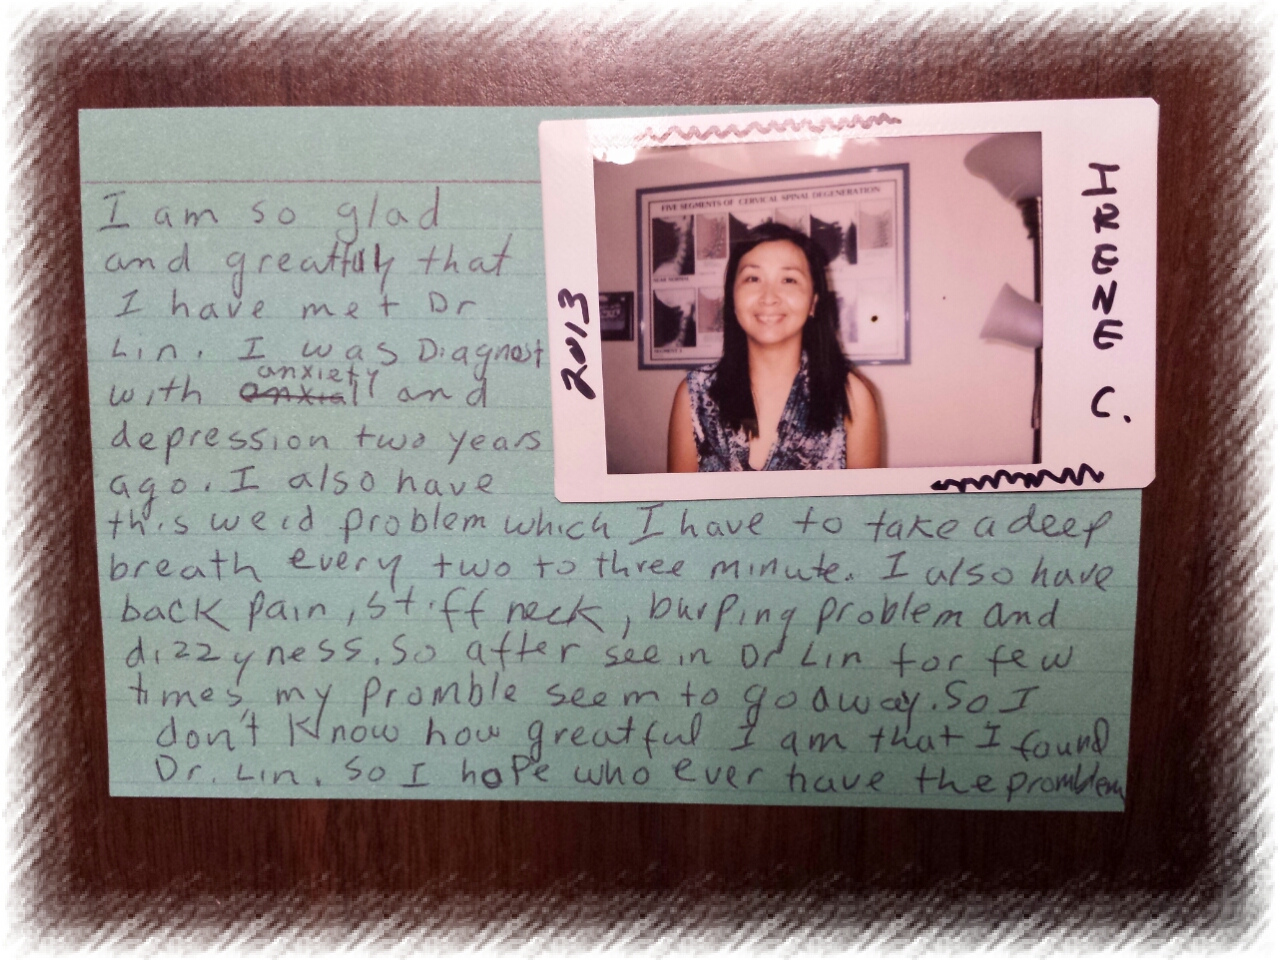 I am so glad
and greatfuly that
I have met Dr
Lin. I was Diagnost
anxiety
with anxiall and
depression two years
ago. I also have
this weid problem which I have to take a deep
breath every two to three minute. I also have
back pain, stiff neck, burping problem and
dizzyness. So after see in Dr Lin for few
times, my promble seem to go away. So I
don't know how greatful I am that I found
Dr. Lin. So I hope who ever have the promblem
2013
IRENE C.
FIVE SEGMENTS OF CERVICAL SPINAL DEGENERATION